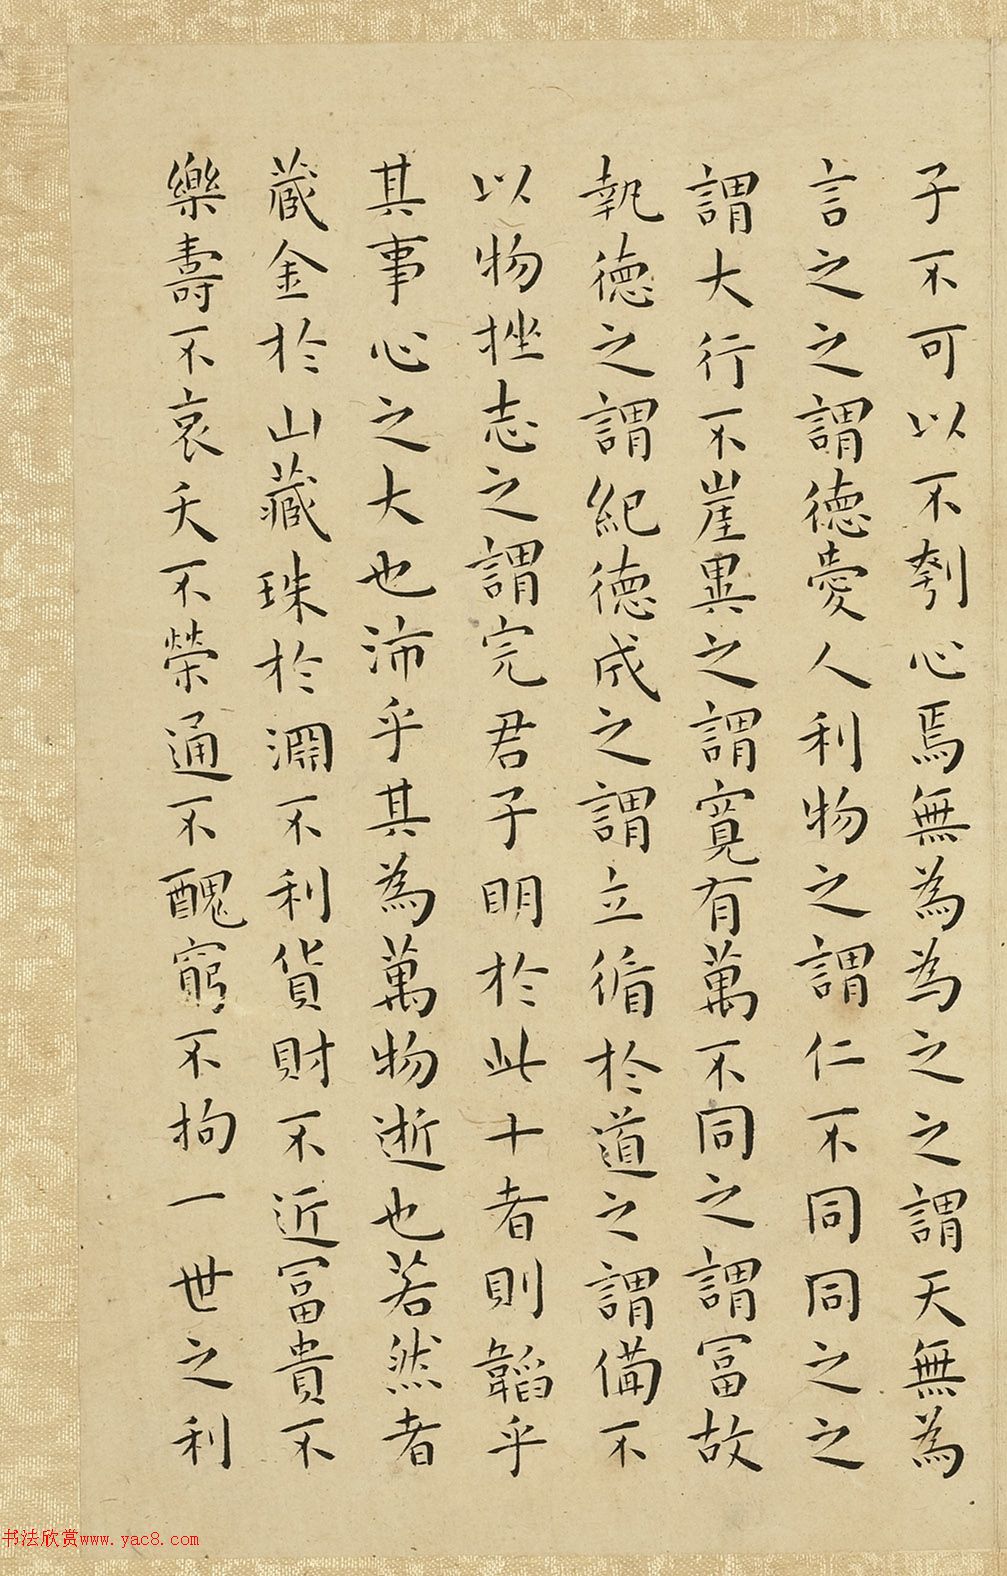 子不可以不刳心焉無為為之之謂天無為
言之之謂德愛人利物之謂仁不同同之之
謂大行不崖異之謂寬有萬不同之謂冨故
執德之謂紀德成之謂立循於道之謂備不
以物挫志之謂完君子明於此十者則韜乎
其事心之大也沛乎其為萬物逝也若然者
藏金於山藏珠於淵不利貨財不近冨貴不
樂壽不哀夭不榮通不醜窮不拘一世之利
书法欣赏www.yac8.com